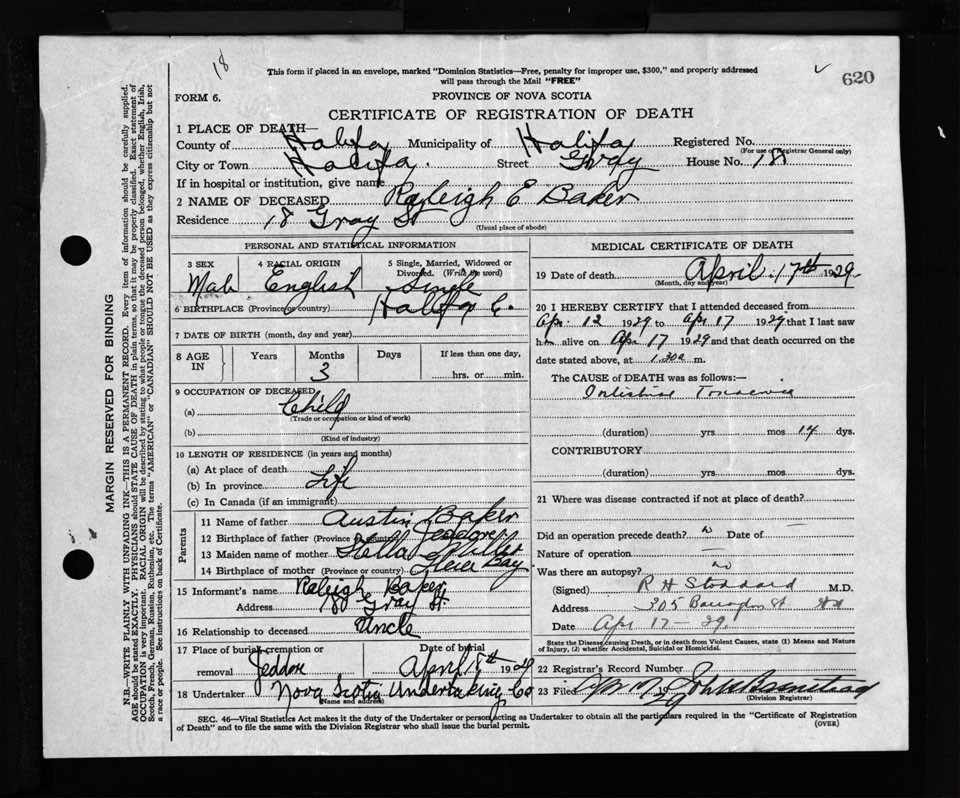 18
This form if placed in an envelope, marked "Dominion Statistics—Free, penalty for improper use, $300," and properly addressed
will pass through the Mail "FREE"
620
FORM 6.
PROVINCE OF NOVA SCOTIA
CERTIFICATE OF REGISTRATION OF DEATH
1 PLACE OF DEATH—
County of Halifax Municipality of Halifax Registered No.
(For use of Registrar General only)
City or Town Halifax Street Gray House No. 18
If in hospital or institution, give name
2 NAME OF DECEASED Rayleigh E Baker
Residence 18 Gray St
(Usual place of abode)
PERSONAL AND STATISTICAL INFORMATION
3 SEX 4 RACIAL ORIGIN 5 Single, Married, Widowed or
Divorced. (Write the word)
Male English Single
6 BIRTHPLACE (Province or country) Halifax C.
7 DATE OF BIRTH (month, day and year)
8 AGE IN Years Months Days If less than one day,
3
hrs. or min.
9 OCCUPATION OF DECEASED
(a) Child
(Trade or occupation or kind of work)
(b)
(Kind of industry)
10 LENGTH OF RESIDENCE (in years and months)
(a) At place of death
(b) In province Life
(c) In Canada (if an immigrant)
Parents
11 Name of father Austin Baker
12 Birthplace of father (Province or country) Jeddore
13 Maiden name of mother Stella Miller
14 Birthplace of mother (Province or country) Bay
15 Informant's name Raleigh Baker
Address 18 Gray St.
16 Relationship to deceased Uncle
17 Place of burial, cremation or Date of burial
removal Jeddore April 18th 1929
18 Undertaker Nova Scotia Undertaking Co
(Name and address)
MEDICAL CERTIFICATE OF DEATH
19 Date of death April 17th 1929
(Month, day and year)
20 I HEREBY CERTIFY that I attended deceased from
Apr 12 1929 to Apr 17 1929 that I last saw
him alive on Apr 17 1929 and that death occurred on the
date stated above, at 1.30 a m.
The CAUSE of DEATH was as follows:—
Intestinal Toxaemia
(duration) yrs mos 14 dys.
CONTRIBUTORY
(duration) yrs. mos dys.
21 Where was disease contracted if not at place of death?
Did an operation precede death? Date of
Nature of operation
Was there an autopsy? no
(Signed) R H Stoddard M.D.
Address 305 Barrington St.
Date Apr 17 - 29.
State the Disease causing Death, or in death from Violent Causes, state (1) Means and Nature
of Injury, (2) whether Accidental, Suicidal or Homicidal.
22 Registrar's Record Number
23 Filed 19 29 John
(Division Registrar)
SEC. 46—Vital Statistics Act makes it the duty of the Undertaker or person acting as Undertaker to obtain all the particulars required in the "Certificate of Registration
of Death" and to file the same with the Division Registrar who shall issue the burial permit.
(OVER)
MARGIN RESERVED FOR BINDING
N.B.—WRITE PLAINLY WITH UNFADING INK—THIS IS A PERMANENT RECORD. Every item of information should be carefully supplied.
AGE should be stated EXACTLY. PHYSICIANS should STATE CAUSE OF DEATH in plain terms, so that it may be properly classified. Exact statement of
OCCUPATION is very important. RACIAL ORIGIN will be described by stating to what people or tongue the deceased person belonged, whether English, Irish,
Scotch, French, German, Russian, Ruthenian, etc. The terms "AMERICAN" or "CANADIAN" SHOULD NOT BE USED as they express citizenship but not
a race or people. See instructions on back of Certificate.